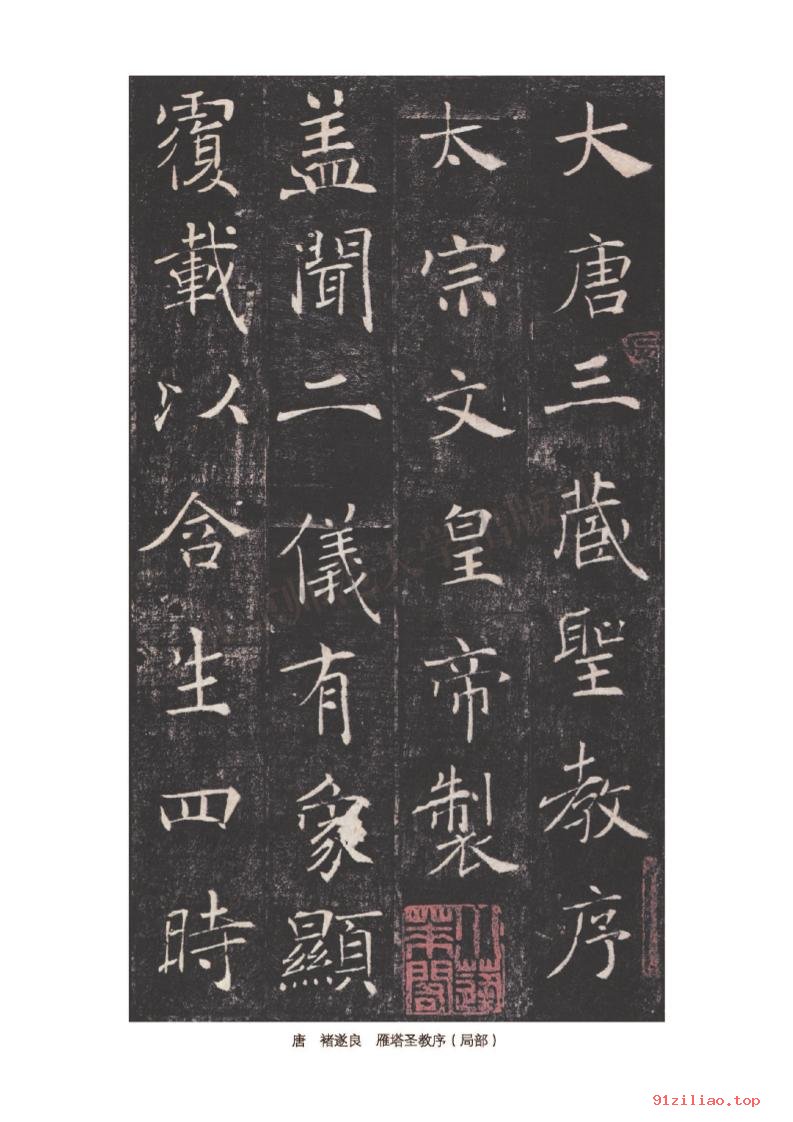 大唐三藏聖教序
太宗文皇帝製
盖聞二儀有象顯
覆載以含生四時
唐 褚遂良 雁塔圣教序（局部）
91ziliao.top